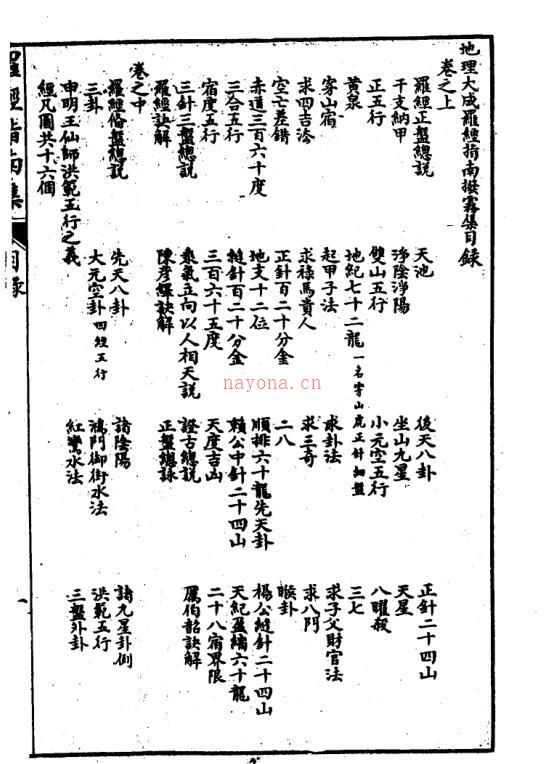 地理大成羅經指南撥霧集目錄
卷之上
羅經正盤總說 天池 後天八卦 正針二十四山
干支納甲 淨陰淨陽 坐山九星 天星
正五行 雙山五行 小元空五行 八曜殺
黃泉 地紀七十二龍 一名穿山虎正針細盤 三七
穿山宿 起甲子法 求卦法 求子父財官法
求四吉 求祿馬貴人 求三奇 求八門
空亡差錯 正針百二十分金 二八 睺卦
赤道三百六十度 地支十二位 順排六十龍先天卦 楊公縫針二十四山
三合五行 縫針百二十分金 賴公中針二十四山 天紀盈縮六十龍
宿度五行 三百六十五度 天度吉凶 二十八宿界限
三針三盤總說 乘氣立向以人相天説 證古總說 厲伯韶訣解
羅經訣解 陳彥訣解 正盤總詠
卷之中
羅經俗盤總說 先天八卦 諸陰陽 諸九星卦例
三卦 大元空卦四經五行 鴻門御街水法 洪範五行
申明王仙師洪範五行之義 紅鸞水法 三盤外卦
經凡圖共十六個
羅經指南集 目錄
nayona.cn